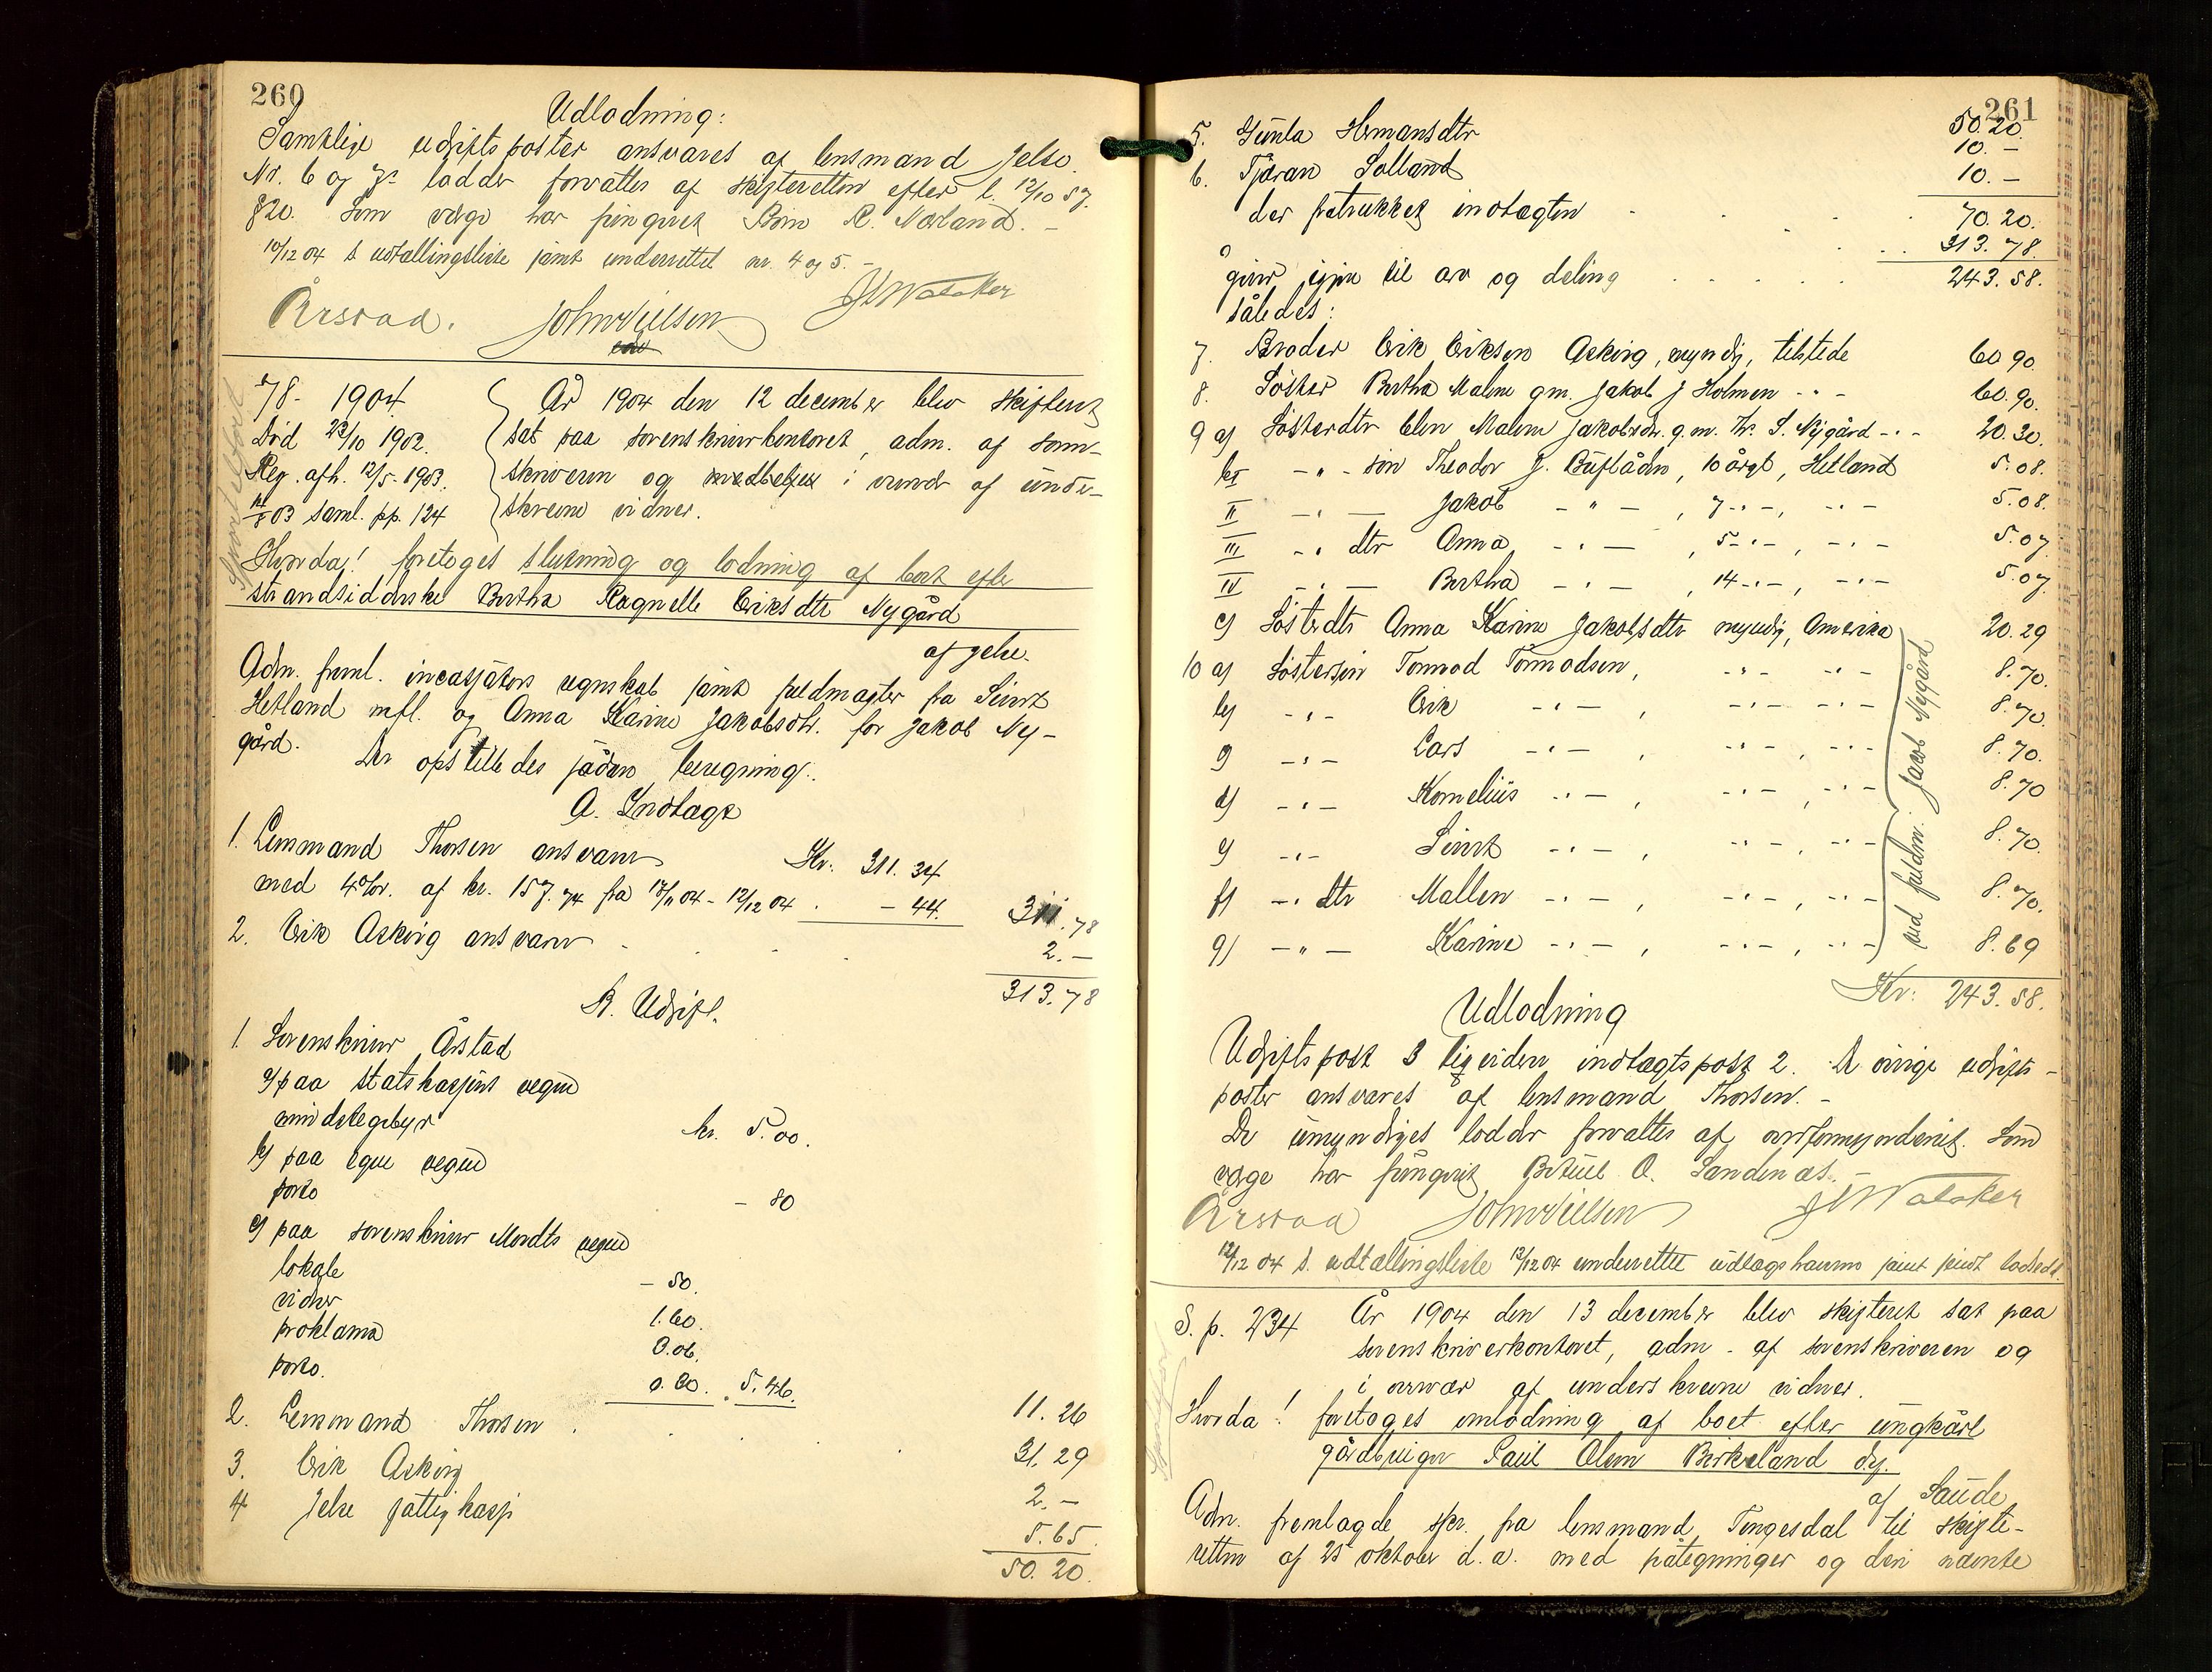 260
Udlodning:
Samtlige udgiftsposter ansvares af lensmand Jelse.
Nr. 6 og 7s lodder forvaltes af skifteretten efter l. 12/10 57
§ 20. Som værge har fungeret R. Nærland. -
10/12 04 s udtallingsliste jamt underrettet nr. 4 og 5. -
Årstad. John Nilsen
78 - 1904.
Död 23/10 1902.
Reg. afh. 12/5 - 1903.
14/8 03 saml. pp. 124
År 1904 den 12 december blev skifteret
sat paa sorenskriverkontoret, adm. af soren-
skriveren og i overvær af under-
skrevne vidner.
Hvorda! foretoges slutning og lodning af boet efter
strandsidderske Bertha Ragnelle Eriksdtr Nygård
af Jelse.
Adm. freml. incassators regnskab jamt fuldmagter fra Sivert
Hetland mfl. og Anna Karine Jakobsdtr. for Jakob Ny-
gård. Der opstilledes sådan beregning:
A. Indtægt
1. Lensmand Thorsen ansvarer Kr: 311. 34
med 4% r. af kr. 157.74 fra 17/11 04 - 12/12 04 . - 44. 311.78
2. Erik Asking ansvarer 2. -
313.78
B. Udgift.
1. Sorenskriver Årstad
a) paa statskassens vegne
mindstegebyr kr. 5.00.
b) paa egne vegne
porto - 80
c) paa sorenskriver Mordts vegne
lokale - 50.
vidner 1.60.
proklama 3.06.
porto. 0.30. 5.46. 11.26
2. Lensmand Thorsen 31.29
3. Erik Asking 2. -
4 Jelse fattigkasse 5.65
50.20.
261
50.20.
5. Gunla Hermansdtr 10. -
6. Tjöran Solland 10. -
70.20.
der fratrukket indtægten 313.78.
giver igjen til arv og deling 243.58.
således:
7. Broder Erik Eriksen Asking, myndig, tilstede 60.90.
8. Söster Bertha Malene gm. Jakob J Holmen - " - 60.90.
9 a) Sösterdtr Elen Malene Jakobsdtr. g.m. Th. S. Nygård - " - 20.30.
bI - " - sön Theodor J. Buflåden, 10 årgl, Hetland 5.08.
II - " - Jakob - " - , 7 - " - , - " - 5.08.
III - " dtr Anna - " - , 5 - " - , - " - 5.07
IV - " - Bertha - " - , 14 - " - , - " - 5.07
c) Sösterdtr Anna Karine Jakobsdtr myndig, Amerika 20.29
10 a) Söstersön Tormod Tormodsen, - " - - " - 8.70.
b) - " - Erik - " - , - " - - " - 8.70.
c) - " - Lars - " - , - " - , - " - 8.70.
d) - " - Kornelius - " - , - " - , - " - 8.70
e) - " - Sivert - " - , - " - , - " - 8.70.
f) - " dtr Mallen - " - , - " - , - " - 8.70.
g) - " - Karine - " - , - " - , - " - 8.69
ved fuldm: Jacob Nygård
Kr: 243.58.
Udlodning
Udgiftspost 3 ligviden indtægtspost 2. De övrige udgifts-
poster ansvares af lensmand Thorsen. -
De umyndiges lodder forvaltes af overformynderiet. Som
værge har fungeret A. Sandenæs. -
Årstad John Nilsen
12/12 04 s. udtallingsliste 12/12 04 underrettet udlægshaverne jamt
S. p. 234
År 1904 den 13 december blev skifteret sat paa
sorenskriverkontoret, adm. af sorenskriveren og
i overvær af underskrevne vidner.
Hvorda! foretoges omlodning af boet efter ungkarl
gårdbruger Paul Olsen Birkeland
af Saude
Adm. fremlagde skr. fra lensmand Tengesdal til skifte-
retten af 25 oktober d.a. med påtegninger og den nævnte